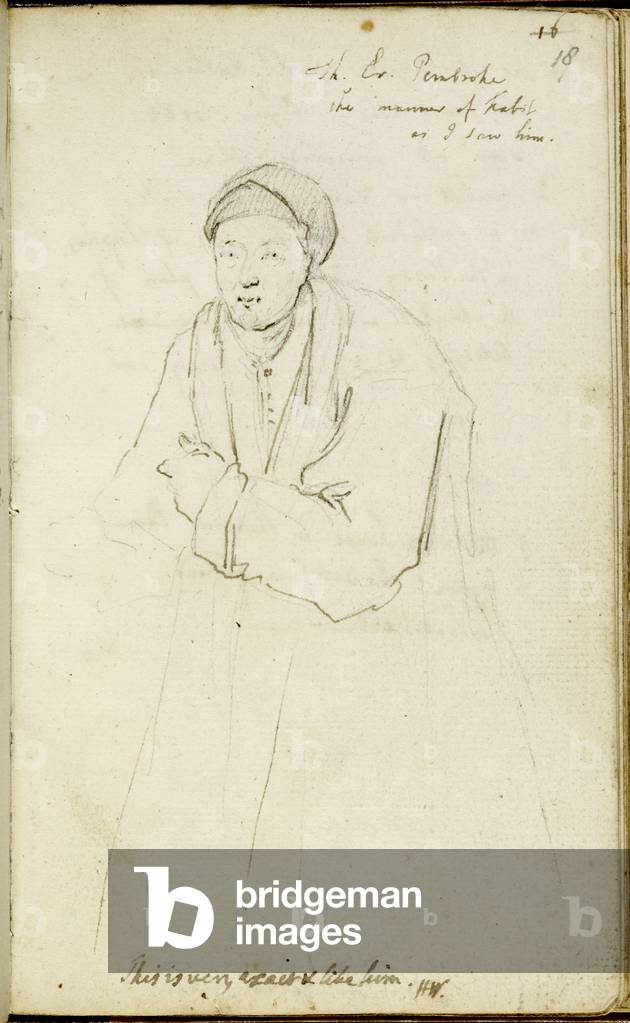 16
18
Th. Er. Pembroke
the manner of habit
as I saw him.
b bridgeman
images
This is very exact & like him. HW.